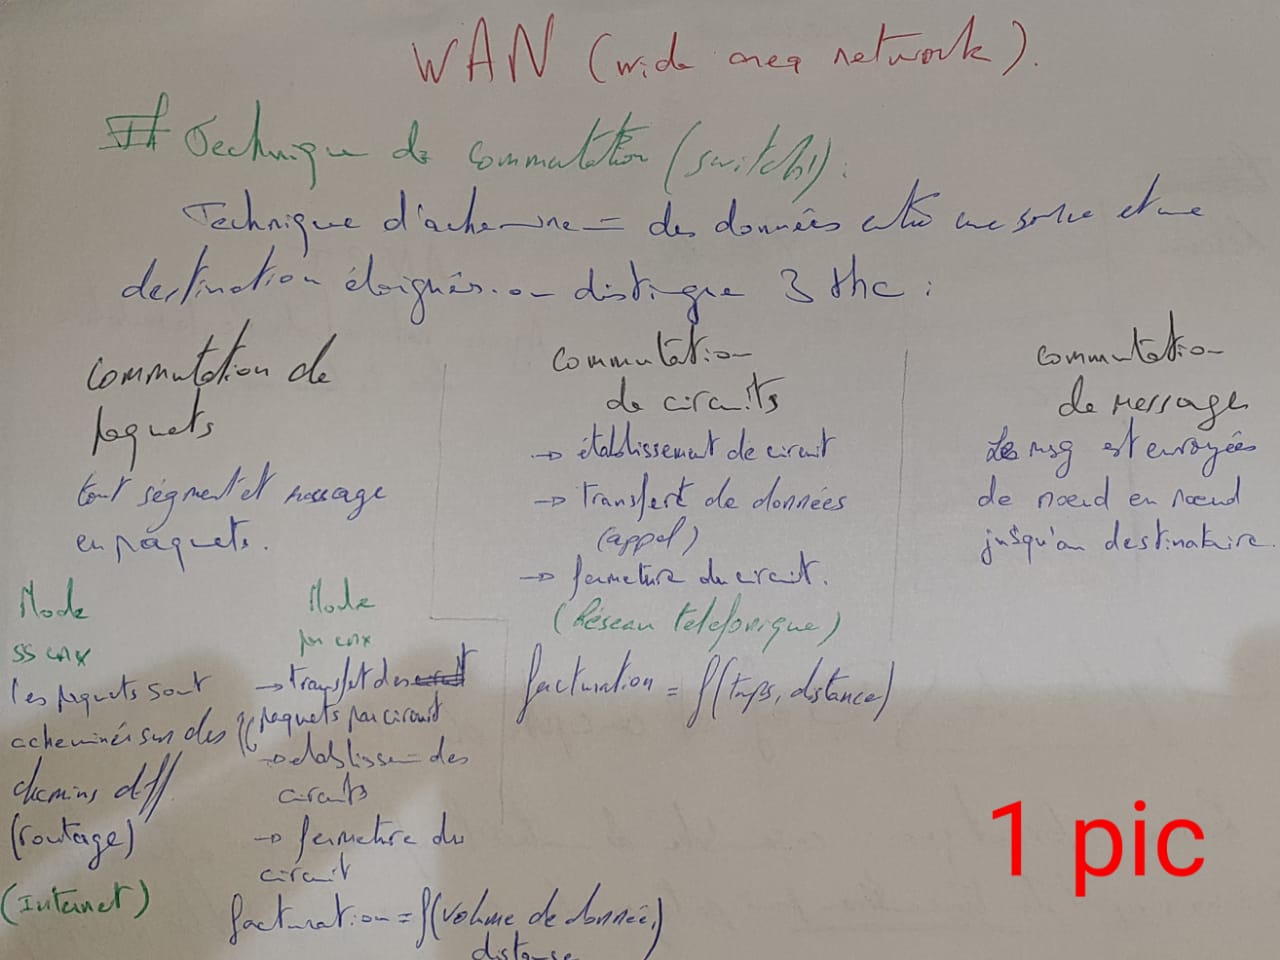 WAN (wide area network).
# Technique de commutation (switch).
Technique d'achemine = des données entre une source et une
destination éloignés. on distingue 3 thc :
commutation de
paquets
tout ségment et message
en paquets.
Mode
ss cnx
les paquets sont
acheminés sur des
chemins diff.
(routage)
(Internet)
Mode
par cnx
→ transfet des
paquets par circuit
→ etablisse = des
circuits
→ fermeture du
circuit
facturation = f(volume de donnée,
distance
commutation
de circuits
→ établissement de circuit
→ transfert de données
(appel)
→ fermeture du circuit.
(Réseau téléfonique)
facturation = f(tmps, distance)
commutation
de messages
Les msg est envoyées
de nœud en nœud
jusqu'au destinataire.
1 pic